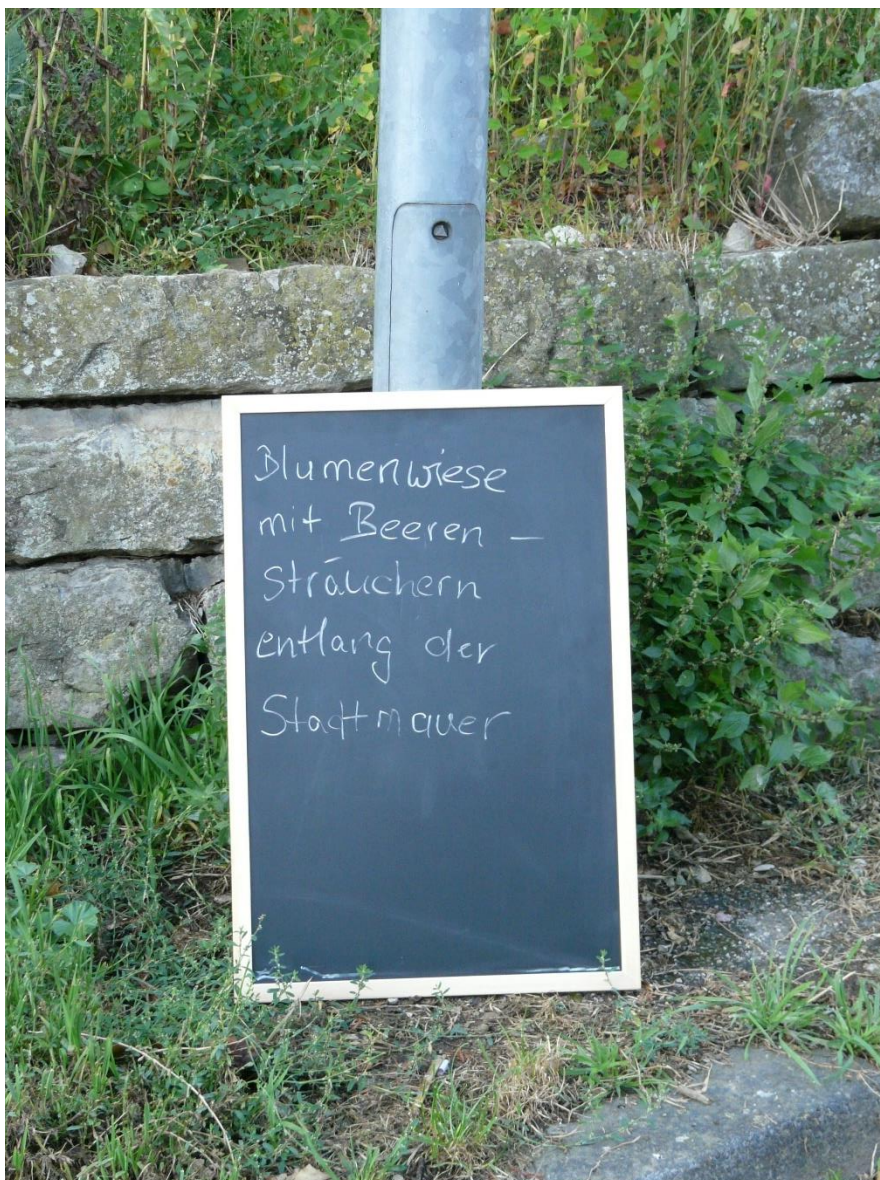 Blumenwiese
mit Beeren –
sträuchern
entlang der
Stadtmauer